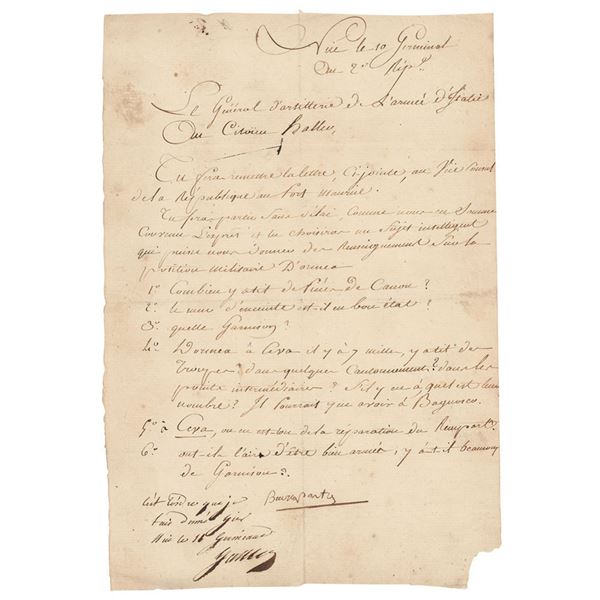 Nice le 10 Germinal
an 2e Répe.
Le Général d'artillerie de L'armée d'Italie
Au Citoien
Tu feras remettre la lettre, Ci-jointe, au Vice Consul
de la République au Port Maurice.
Tu fera partir sans délai, comme nous en sommes
Convenu L'exprès et tu choisiras un Sujet intelligent
qui puisse nous donner des Renseignement sur la
position militaire D'ormea
1o. Combien y a t il de pièces de Canon?
2o. le mur d'enceinte est-il en bon état?
3o. quelle Garnison?
4o. Dormea à Ceva il y a 7 mille, y a t il des
Troupes dans quelques Cantonnement? dans les
points intermédiaires? S'il y en a, quel est leur
nombre? Il pourrait y en avoir à Bagnasco.
5o. à Ceva, où en est-on de la réparation du Rempart.
6o. ont-ils l'air d'être bien armés, y a t il beaucoup
de Garnison?
Buonaparte
l'ordre que je
Nice le 11 Germinal